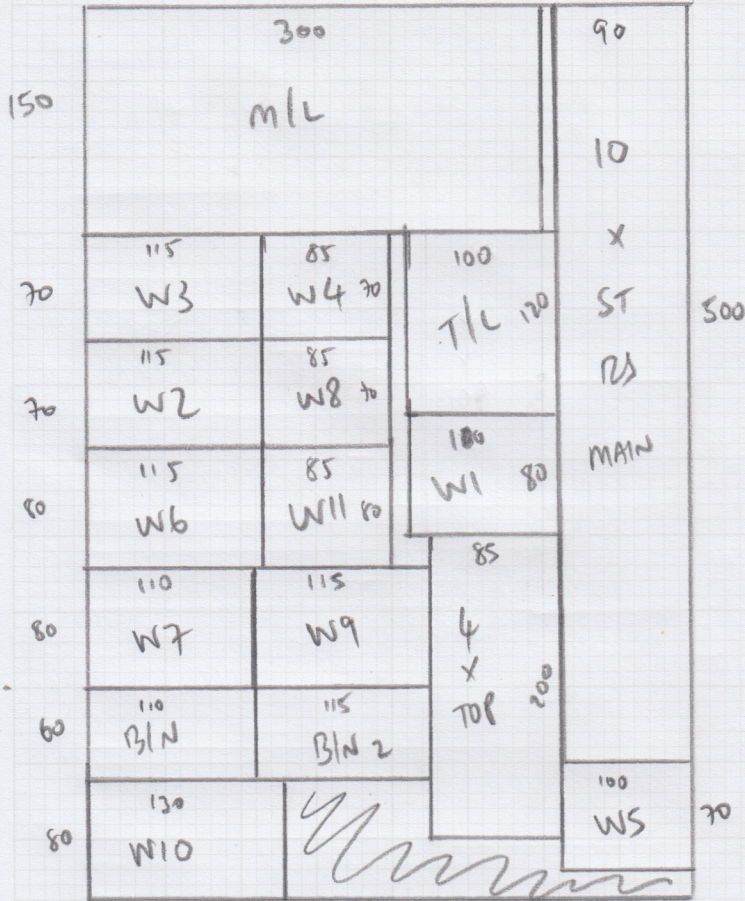 300
150
M/L
90
10
X
ST
RS
MAIN
500
115
70
W3
85
W4 70
100
T/L 120
115
70
W2
85
W8 70
100
W1 80
115
80
W6
85
W11 80
110
80
W7
115
W9
85
4
X
TOP
200
110
60
B/N
115
B/N 2
130
80
W10
100
W5
70